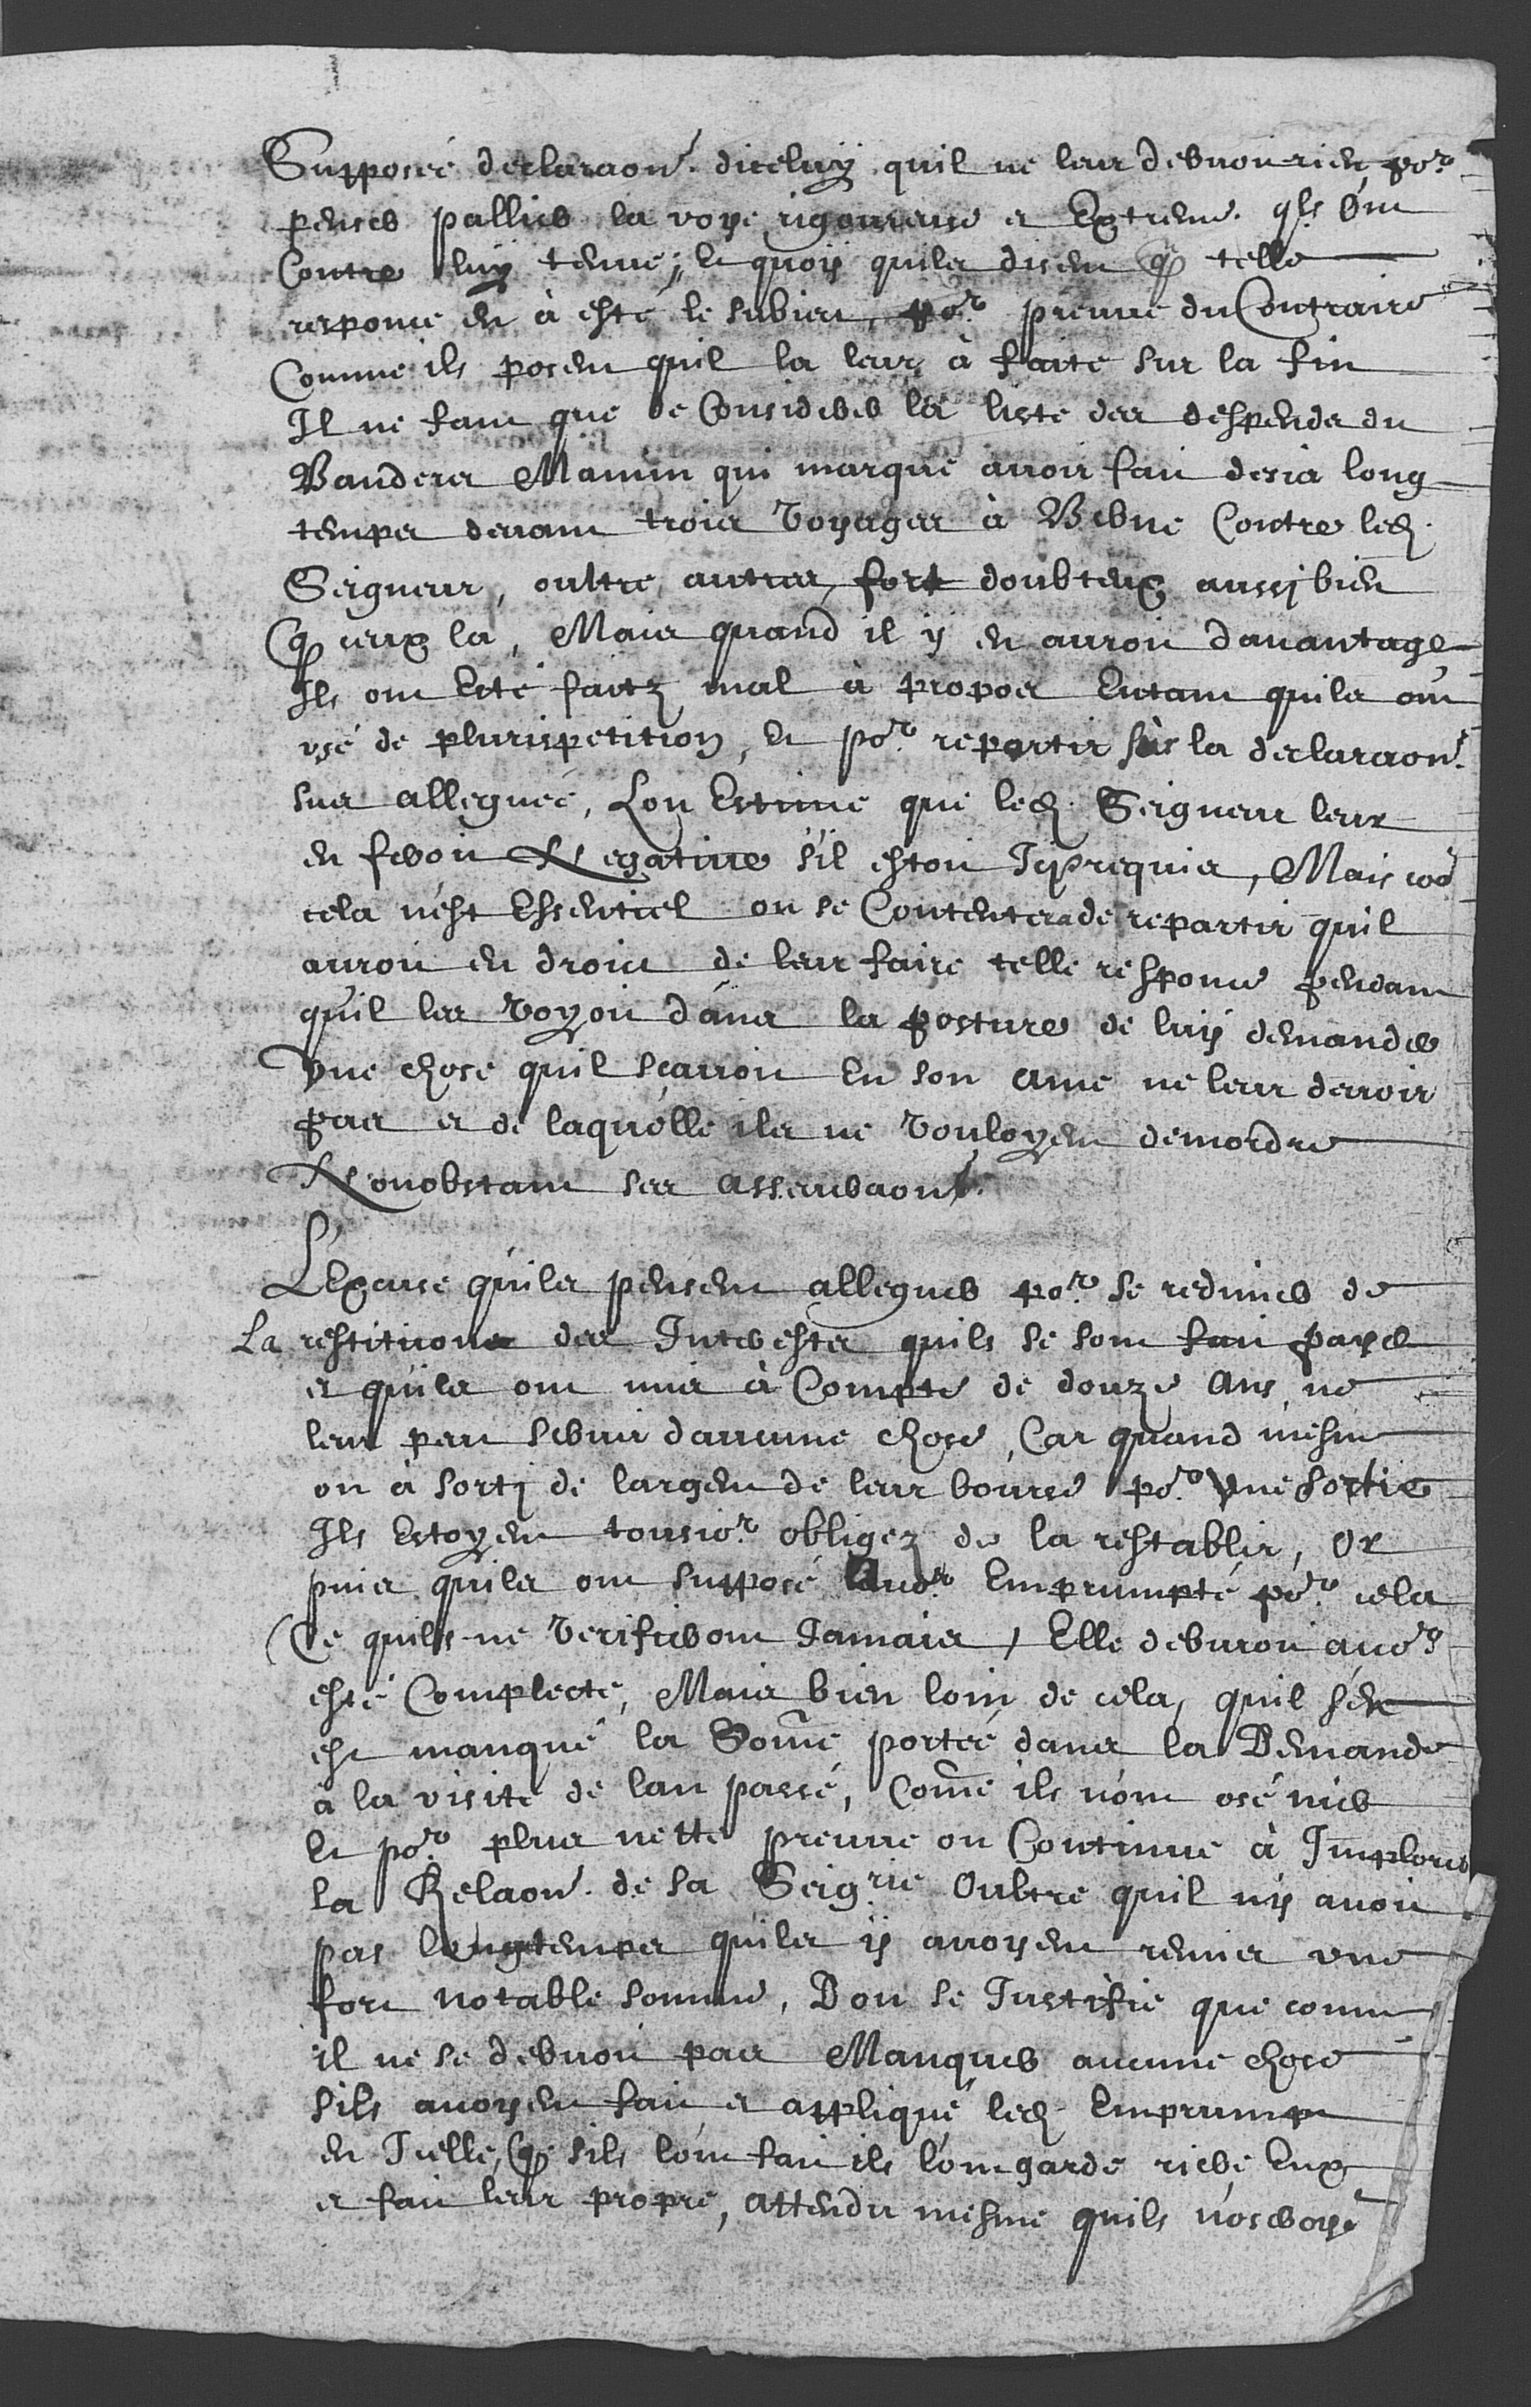 Supposeé declaraon. diceluÿ quil ne leur debuoit rien, por.
penser pallier la voye rigoureuse et Extreme. qls ont
Contre luÿ tenue; et quoÿ quils disent q telle
responce en à esté le subiect, por. preuue du Contraire
Comme ils posent quil la leur à faite sur la fin
Il ne faut que de Considerer la liste des despends du
Banderet Mamin qui marque auoir fait desia long
temps deuant trois voyages à Berne Contre led.
Seigneur, oultre autres fort doubteux aussj bien
q ceux la, Mais quand il y en auroit dauantage
Ils ont Esté faitz mal à propos Entant quils ont
vsé de plurispetition, et por. repartir sus la declaraon.
sus allegueé, Lon Estime que led. Seigneur leur
en feroit Negatiue s'il estoit Jcy requis, Mais coe
cela n'est Essentiel on se Contentera de repartir quil
auroit eu droict de leur faire telle responce pendant
qu'il les voyoit dans la posture de luÿ demander
vne chose quil scauoit en son ame ne leur deuoir
pas et de laquelle ils ne vouloyent demordre
Nonobstant ses asseuraons.
L'Excuse quils pensent alleguer por. se redimer de
La restitirons des Interests quils se sont fait payer
et quils ont mis à Compte de douze Ans ne
leur peut seruir daucune chose, Car quand mesme
on à sortj de largent de leur bourse por. vne sortie
Ils Estoyent tousior. obligez de la restablir, Or
puis quils ont supposé lauor. Emprumpté por. cela
Ce quils ne verifieront Jamais, Elle deburoit auor.
esté Complecte, Mais bien loin de cela, quil s'en
est manqué la Some portée dans la Demande
à la visite de lan passé, Come ils n'ont osé nier
Et por. plus nette preuue on Continue à Implorer
la Relaon. de sa Seigrie Oultre quil nÿ auoit
pas longtemps quils ÿ auoyent remis vne
fort notable somme, Dou se Justifie que comme
il ne se debuoit pas Manquer aucune chose
sils auoyent fait et appliqué led. Emprumpt
en Jcelle, q sils lont fait ils lont garde riere Eux
et fait leur propre, attendu mesme quils